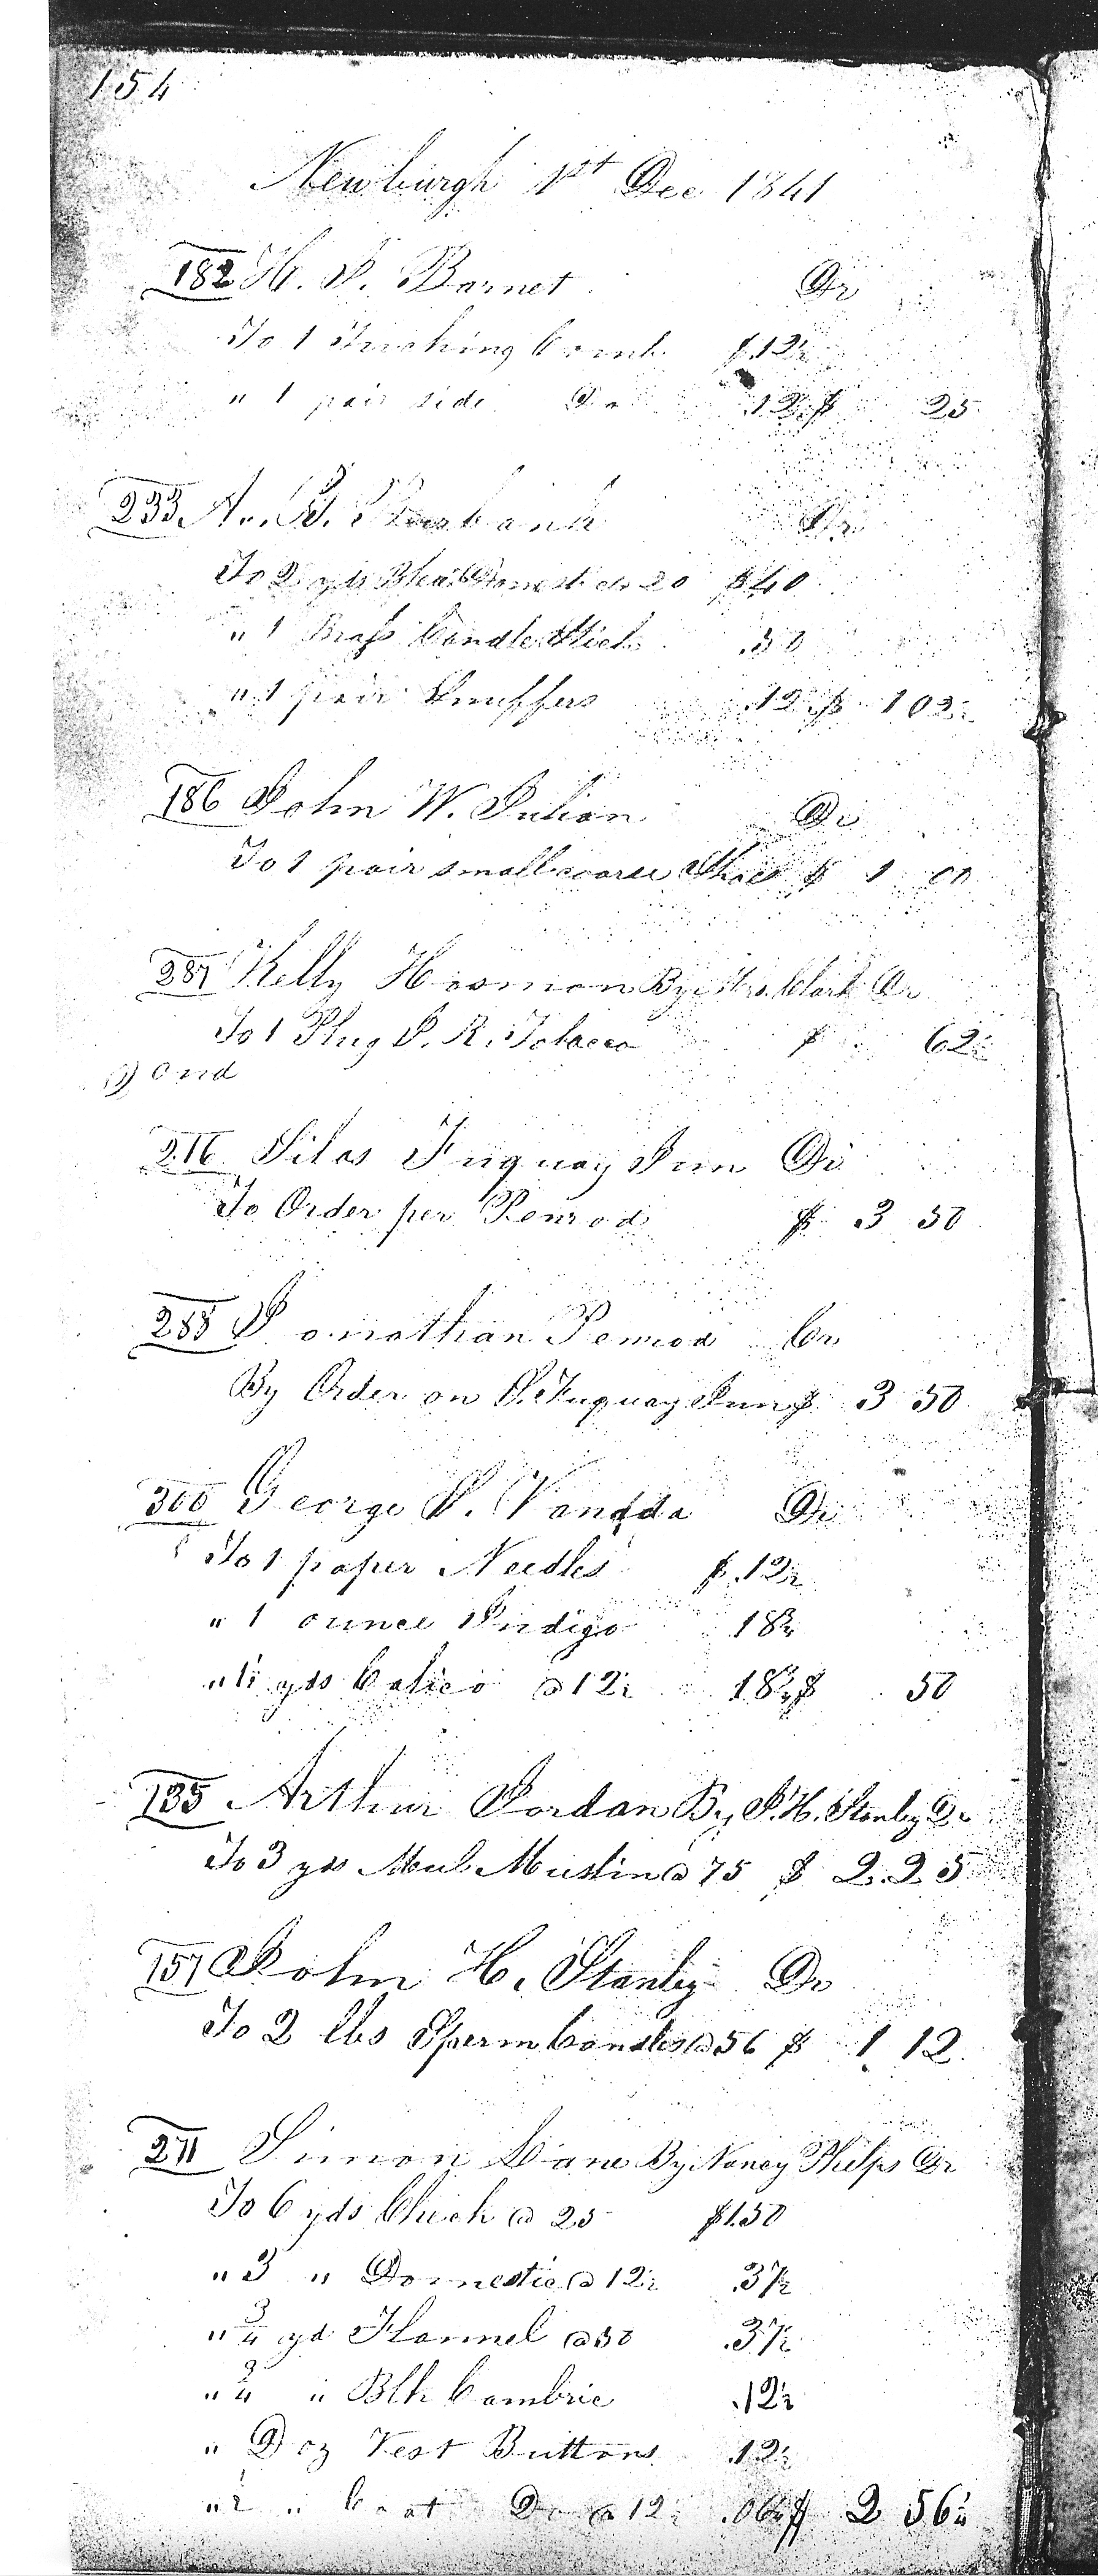 154
Newburgh 1st Dec 1841
182 H. P. Barnet Dr
To 1 Tucking Comb $.12½
" 1 pair side Do .12½ $ 25
233 A. B. Dr
To 2 yds Blea Domestic 20 $.40
" 1 Brass Candle Stick .50
" 1 pair Snuffers .12½ $ 1 02½
186 John W. Julian Dr
To 1 pair small coarse Shoes $ 1 00
287 Kelly Hosmon By Mrs. Clark Dr
To 1 Plug J. R. Tobacco $ 62½
216 Silas Fuquay Jun Dr
To Order per Penrod $ 3 50
288 Jonathan Penrod Cr
By Order on S. Fuquay Jun $ 3 50
300 George S. Vandda Dr
To 1 paper Needles $.12½
" 1 ounce Indigo 18¾
" 1½ yds Calico @ 12½ 18¾ $ 50
135 Arthur Jordan By J. H. Stanley Dr
To 3 yds Mul Muslin @ 75 $ 2.25
157 John H. Stanley Dr
To 2 lbs Sperm Candles @ 56 $ 1 12
271 Simon Cane By Nancy Phelps Dr
To 6 yds Check @ 25 $1.50
" 3 " Domestic @ 12½ .37½
" ¾ yd Flannel @ 50 .37½
" ¾ " Blk Cambric .12½
" Doz Vest Buttons .12½
" ½ " Coat Do @ 12½ .06¼ $ 2 56¼